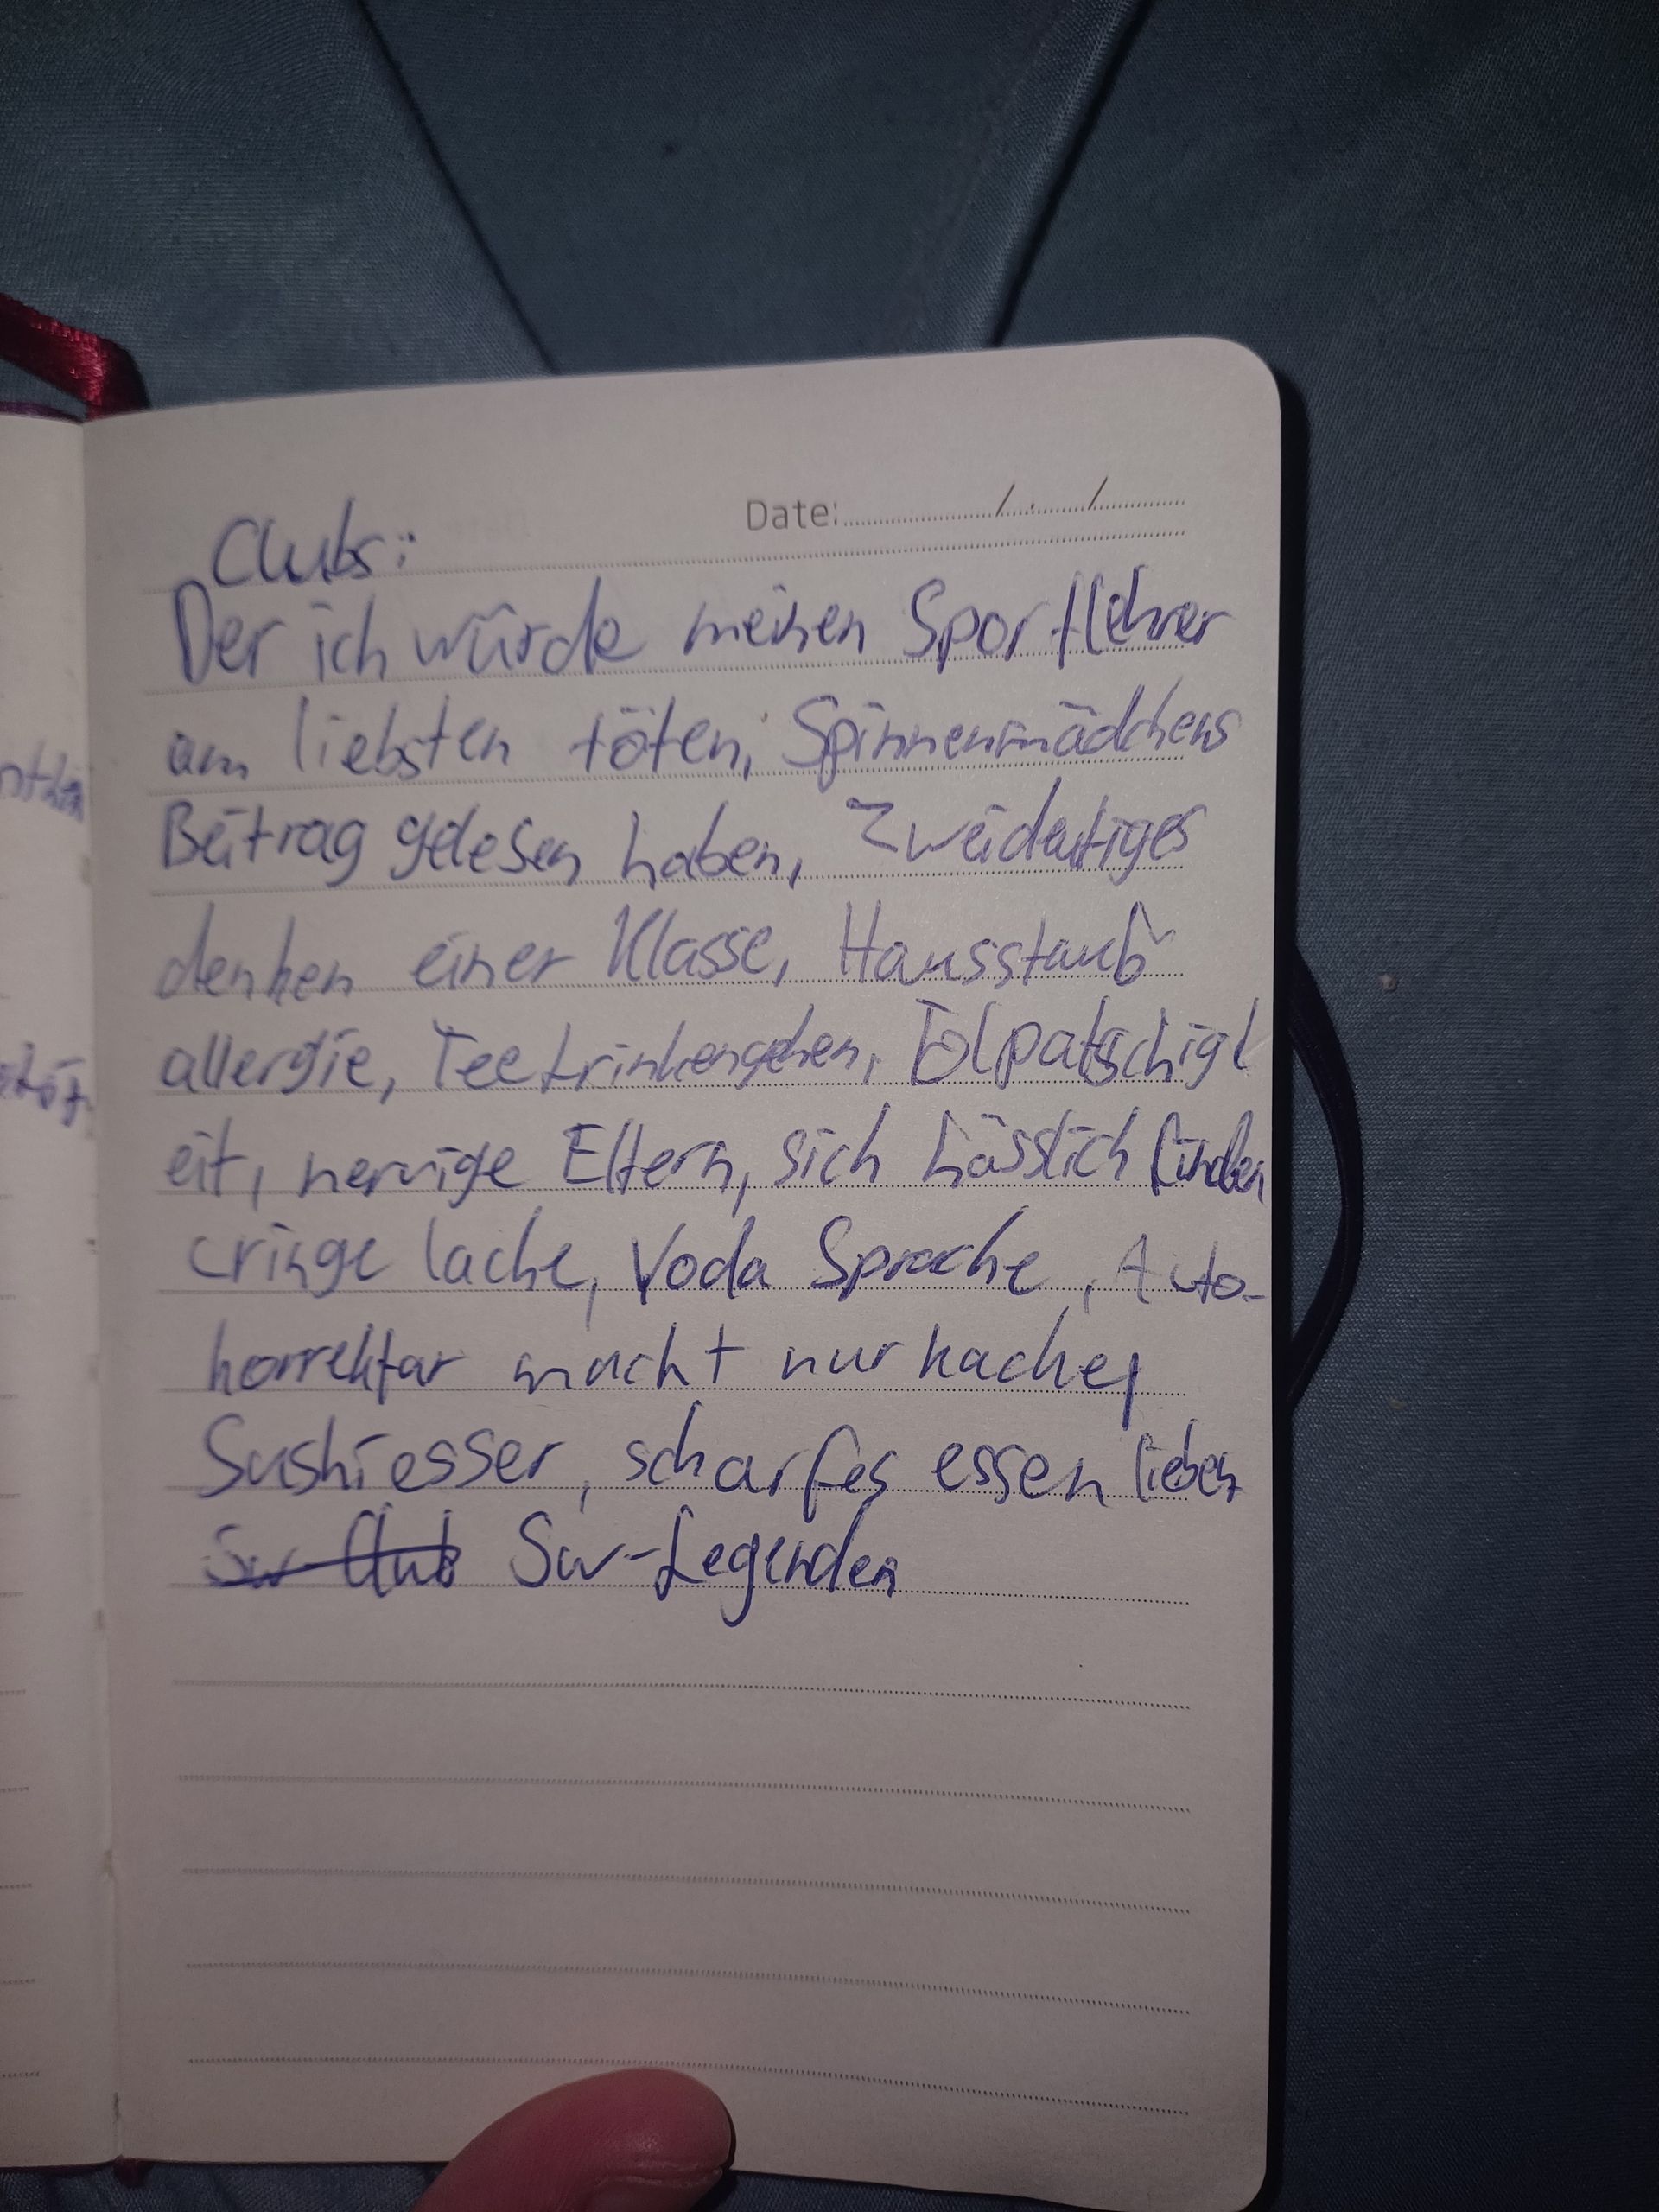 Date: / /
Clubs:
Der ich würde meinen Sportlehrer
am liebsten töten, Spinnenmädchens
Beitrag gelesen haben, Zweideutiges
denken einer Klasse, Hausstaub
allergie, Teetrinkengehen, Tolpatschigk
eit, nervige Eltern, sich hässlich finden
cringe lache, Yoda Sprache, Auto-
korrektur macht nur kacke,
Sushiesser, scharfes essen lieben
Sw-Club Sw-Legenden